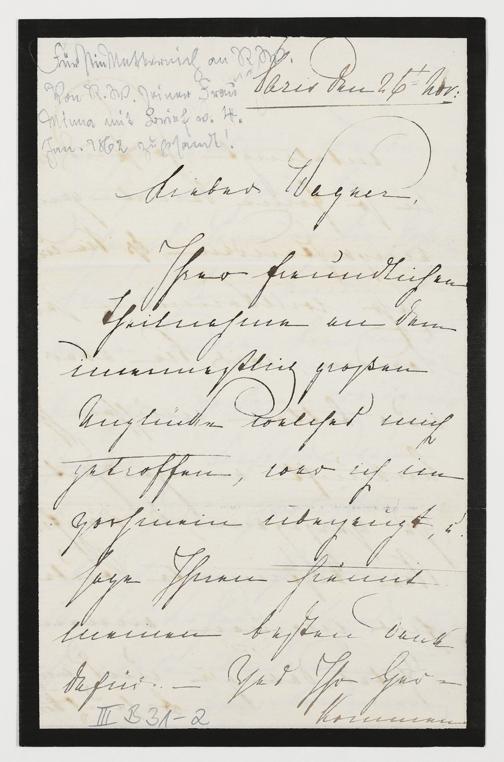 Fürstin Metternich an R.W.
Von R.W. seiner Frau
Minna mit Brief v. 4.
Jan. 1862 zugesandt!
Paris den 26t Nov:
Lieber Wagner,
Ihrer freundlichen
Theilnahme an dem
unermeßlich großen
Unglücke welches mich
getroffen, war ich im
vorhinein überzeugt, u.
sage Ihnen hiemit
meinen besten Dank
dafür. —
Ihr Her-
kommen
III B 31-2